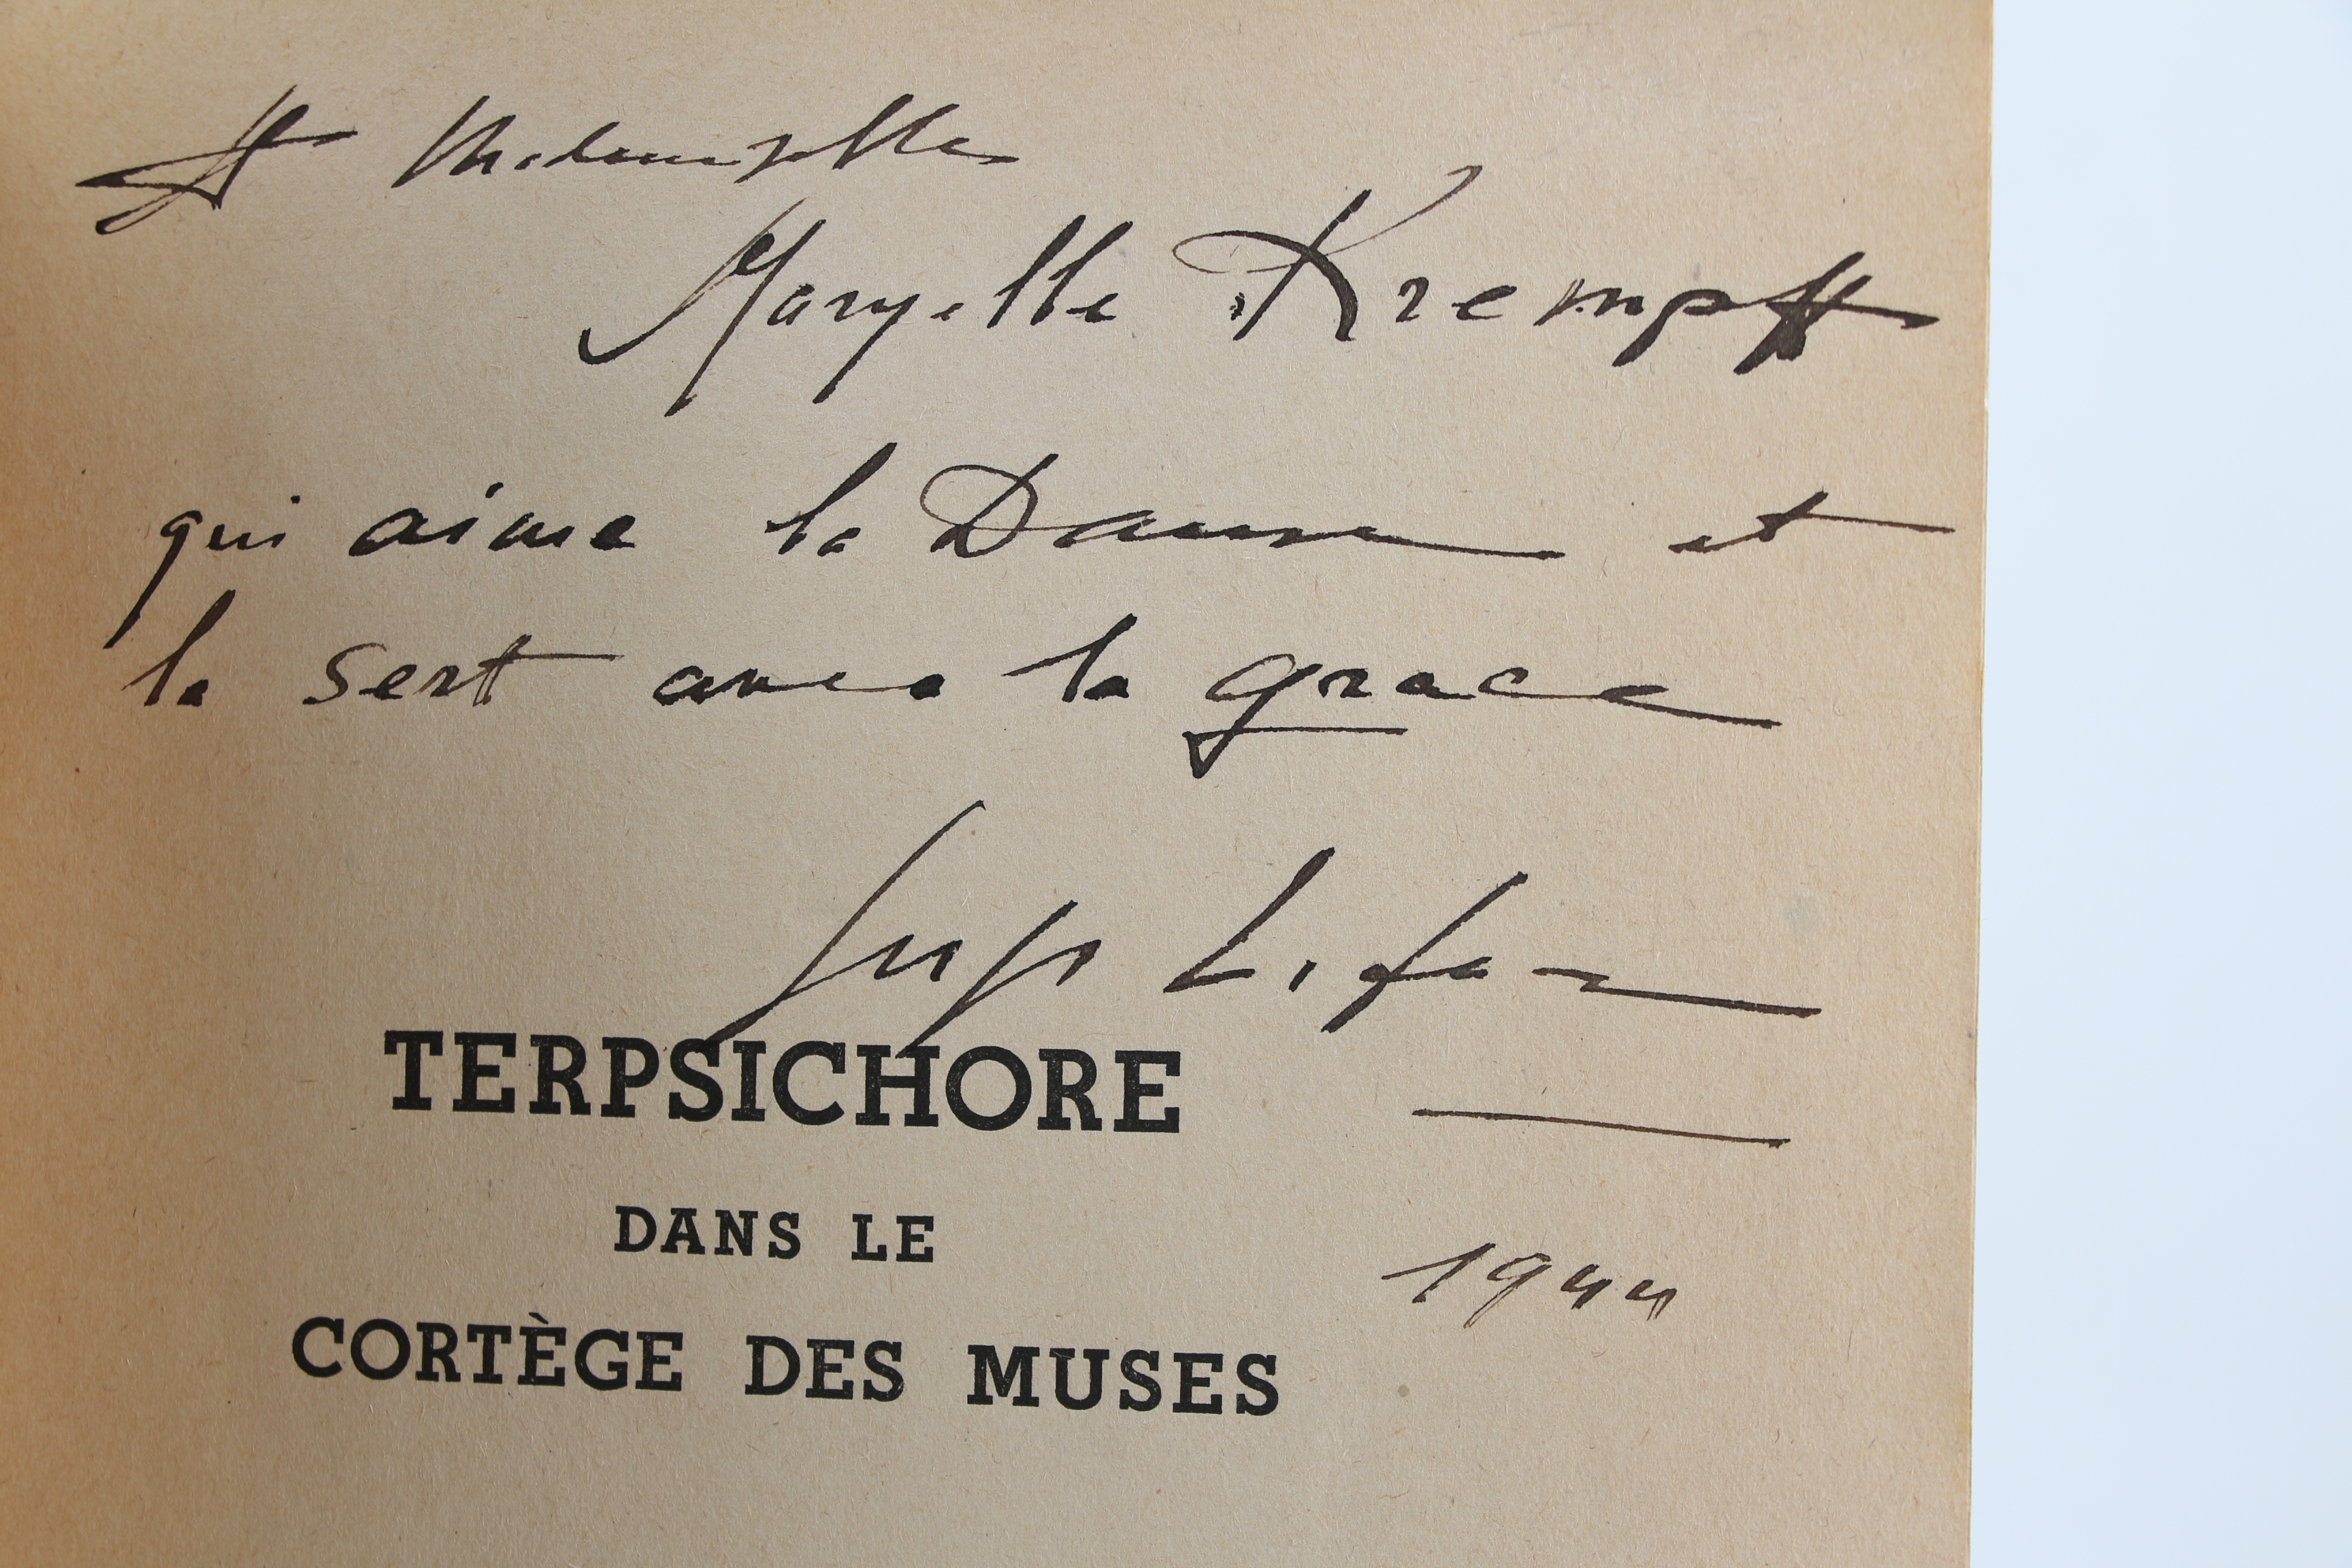 A Mademoiselle
Maryelle Krempff
qui aime la Danse et
la sert avec la grace
Serge Lifar
TERPSICHORE
DANS LE
CORTÈGE DES MUSES
1944